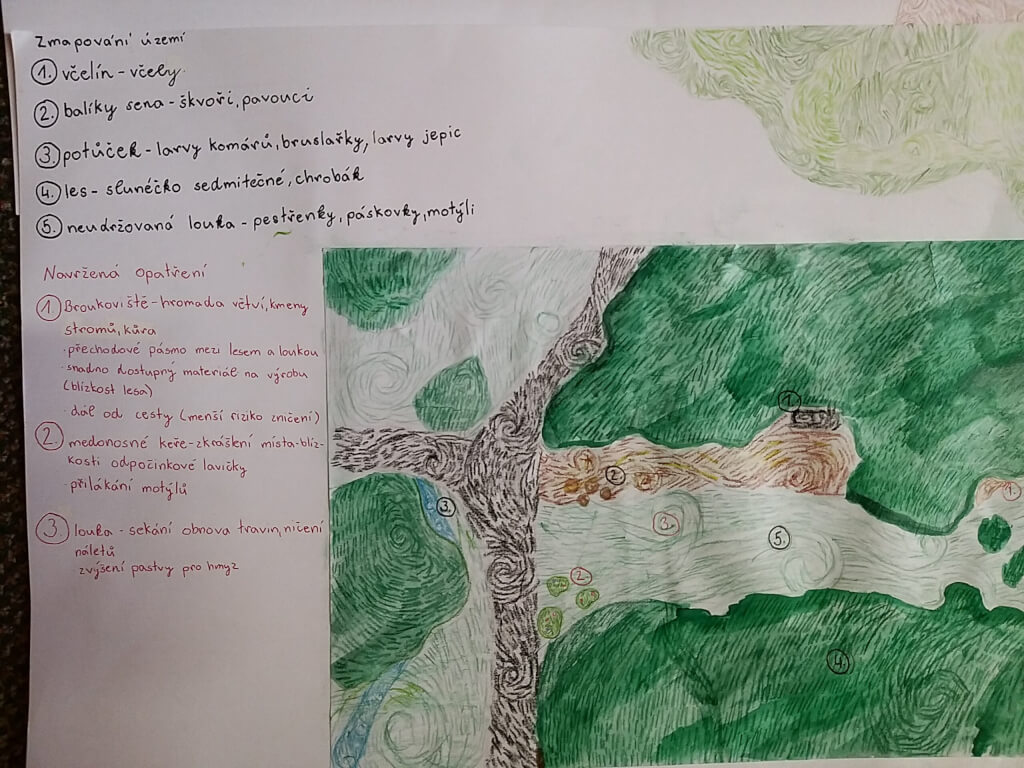 Zmapování území
1. včelín - včely
2. balíky sena - škvoři, pavouci
3. potůček - larvy komárů, bruslařky, larvy jepic
4. les - slunéčko sedmitečné, chrobák
5. neudržovaná louka - pestřenky, páskovky, motýli
Navržená opatření
1. Broukoviště - hromada větví, kmeny
stromů, kůra
· přechodové pásmo mezi lesem a loukou
· snadno dostupný materiál na výrobu
(blízkost lesa)
· dál od cesty (menší riziko zničení)
2. medonosné keře - zkrášlení místa - blíz-
kosti odpočinkové lavičky
· přilákání motýlů
3. louka - sekání obnova travin, ničení
náletů
· zvýšení pastvy pro hmyz
1.
2.
3.
1.
3.
5.
2.
4.